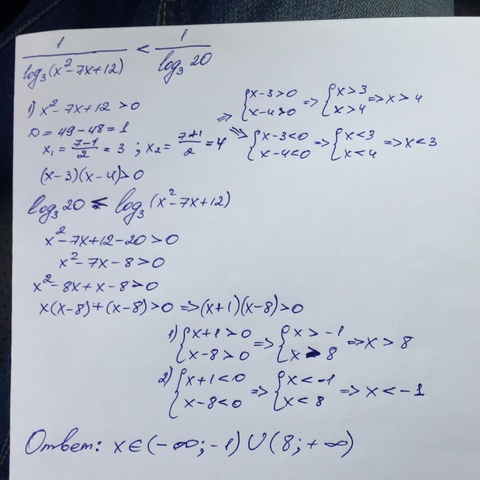 1/log₃(x²-7x+12) < 1/log₃20
1) x²-7x+12>0
D=49-48=1
x₁=(7-1)/2=3 ; x₂=(7+1)/2=4
(x-3)(x-4)>0
=> {x-3>0 x-4>0 => {x>3 x>4 => x>4
=> {x-3<0 x-4<0 => {x<3 x<4 => x<3
log₃20 < log₃(x²-7x+12)
x²-7x+12-20>0
x²-7x-8>0
x²-8x+x-8>0
x(x-8)+(x-8)>0 => (x+1)(x-8)>0
1) {x+1>0 x-8>0 => {x>-1 x>8 => x>8
2) {x+1<0 x-8<0 => {x<-1 x<8 => x<-1
Ответ: x∈(-∞;-1)∪(8;+∞)